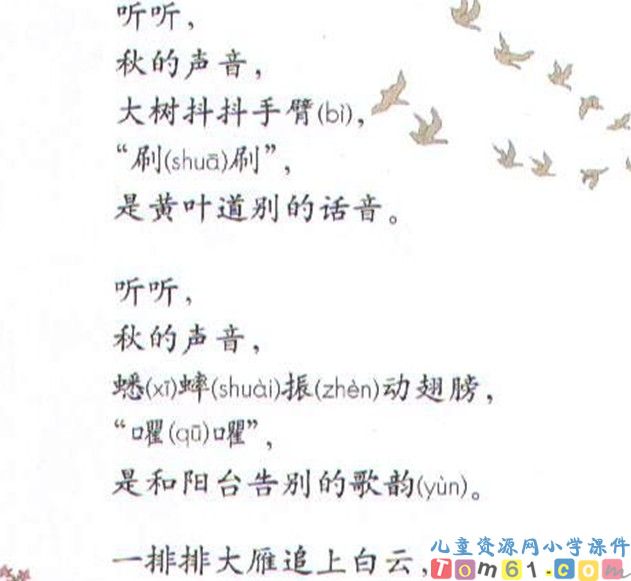 听听，
秋的声音，
大树抖抖手臂(bì)，
“刷(shuā)刷”，
是黄叶道别的话音。
听听，
秋的声音，
蟋(xī)蟀(shuài)振(zhèn)动翅膀，
“㘗(qū)㘗”，
是和阳台告别的歌韵(yùn)。
一排排大雁追上白云，
儿童资源网小学课件
Tom61.com